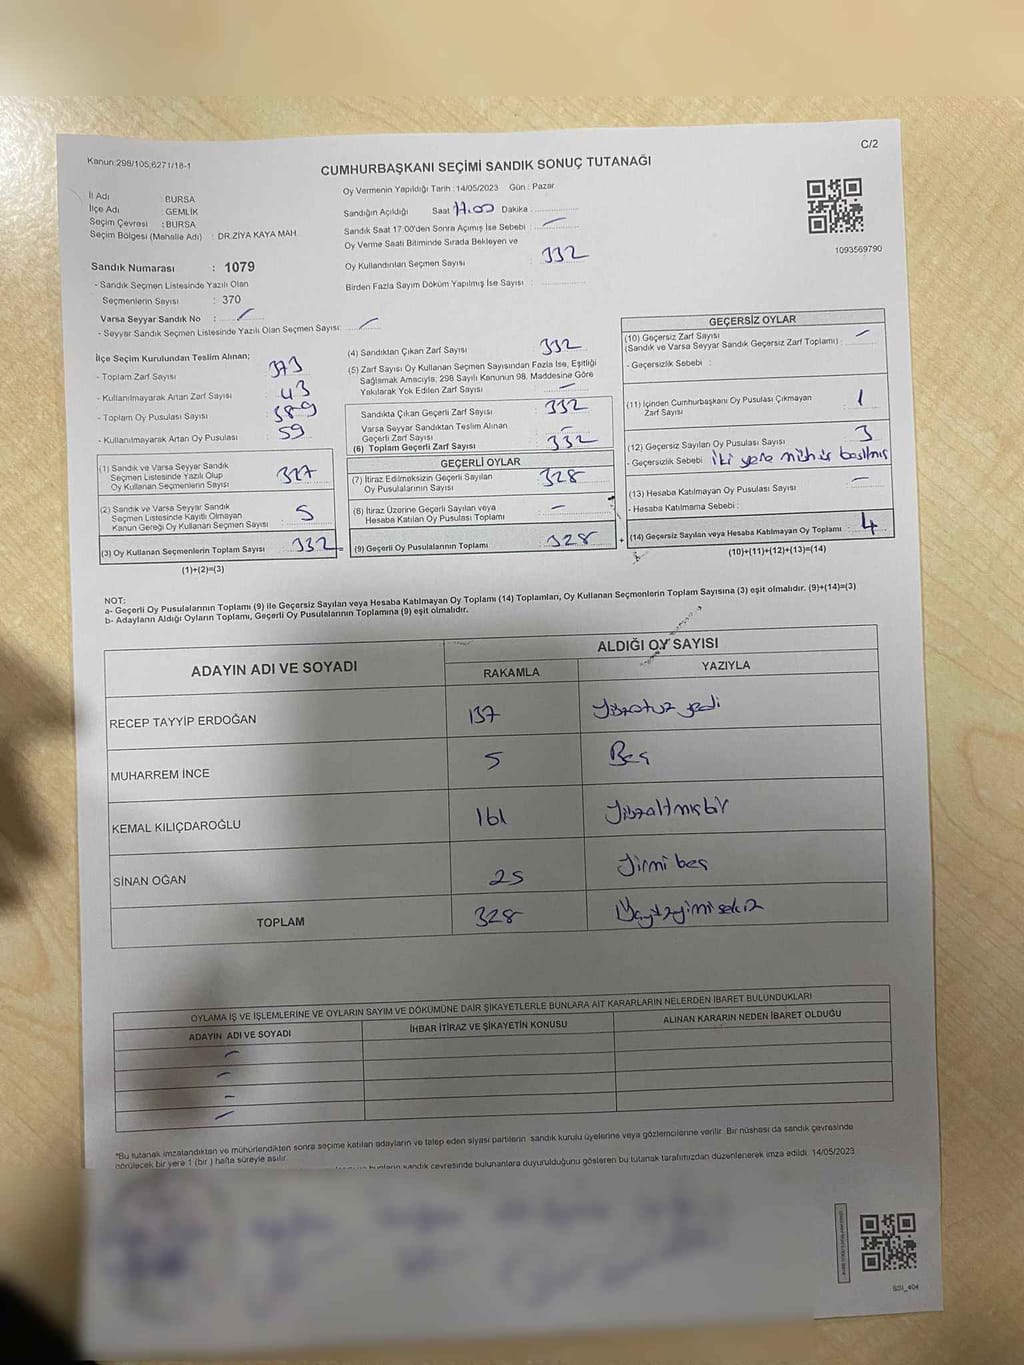 Kanun:298/105,6271/18-1
C/2
CUMHURBAŞKANI SEÇİMİ SANDIK SONUÇ TUTANAĞI
İl Adı : BURSA
İlçe Adı : GEMLİK
Seçim Çevresi : BURSA
Seçim Bölgesi (Mahalle Adı) : DR.ZİYA KAYA MAH.
Sandık Numarası : 1079
- Sandık Seçmen Listesinde Yazılı Olan
Seçmenlerin Sayısı : 370
Varsa Seyyar Sandık No : -
- Seyyar Sandık Seçmen Listesinde Yazılı Olan Seçmen Sayısı: -
Oy Vermenin Yapıldığı Tarih : 14/05/2023 Gün : Pazar
Sandığın Açıldığı Saat 17.00 Dakika
Sandık Saat 17:00'den Sonra Açımış İse Sebebi : -
Oy Verme Saati Bitiminde Sırada Bekleyen ve
Oy Kullandırılan Seçmen Sayısı : 332
Birden Fazla Sayım Döküm Yapılmış İse Sayısı :
1093569790
İlçe Seçim Kurulundan Teslim Alınan;
- Toplam Zarf Sayısı 373
- Kullanılmayarak Artan Zarf Sayısı : 43
- Toplam Oy Pusulası Sayısı : 389
- Kullanılmayarak Artan Oy Pusulası : 59
(1) Sandık ve Varsa Seyyar Sandık
Seçmen Listesinde Yazılı Olup
Oy Kullanan Seçmenlerin Sayısı 327
(2) Sandık ve Varsa Seyyar Sandık
Seçmen Listesinde Kayıtlı Olmayan
Kanun Gereği Oy Kullanan Seçmen Sayısı 5
(3) Oy Kullanan Seçmenlerin Toplam Sayısı 332
(1)+(2)=(3)
(4) Sandıktan Çıkan Zarf Sayısı 332
(5) Zarf Sayısı Oy Kullanan Seçmen Sayısından Fazla İse, Eşitliği
Sağlamak Amacıyla; 298 Sayılı Kanunun 98. Maddesine Göre
Yakılarak Yok Edilen Zarf Sayısı : -
Sandıkta Çıkan Geçerli Zarf Sayısı : 332
Varsa Seyyar Sandıktan Teslim Alınan
Geçerli Zarf Sayısı : -
(6) Toplam Geçerli Zarf Sayısı : 332
GEÇERLİ OYLAR
(7) İtiraz Edilmeksizin Geçerli Sayılan
Oy Pusulalarının Sayısı : 328
(8) İtiraz Üzerine Geçerli Sayılan veya
Hesaba Katılan Oy Pusulası Toplamı : -
(9) Geçerli Oy Pusulalarının Toplamı : 328
GEÇERSİZ OYLAR
(10) Geçersiz Zarf Sayısı
(Sandık ve Varsa Seyyar Sandık Geçersiz Zarf Toplamı) : -
- Geçersizlik Sebebi :
(11) İçinden Cumhurbaşkanı Oy Pusulası Çıkmayan
Zarf Sayısı : 1
(12) Geçersiz Sayılan Oy Pusulası Sayısı : 3
- Geçersizlik Sebebi : iki yere mühür basılmış
(13) Hesaba Katılmayan Oy Pusulası Sayısı : -
- Hesaba Katılmama Sebebi :
+ (14) Geçersiz Sayılan veya Hesaba Katılmayan Oy Toplamı : 4
(10)+(11)+(12)+(13)=(14)
NOT:
a- Geçerli Oy Pusulalarının Toplamı (9) ile Geçersiz Sayılan veya Hesaba Katılmayan Oy Toplamı (14) Toplamları, Oy Kullanan Seçmenlerin Toplam Sayısına (3) eşit olmalıdır. (9)+(14)=(3)
b- Adayların Aldığı Oyların Toplamı, Geçerli Oy Pusulalarının Toplamına (9) eşit olmalıdır.
ADAYIN ADI VE SOYADI
ALDIĞI OY SAYISI
RAKAMLA YAZIYLA
RECEP TAYYİP ERDOĞAN 137 Yüzotuz yedi
MUHARREM İNCE 5 Beş
KEMAL KILIÇDAROĞLU 161 Yüzaltmışbir
SİNAN OĞAN 25 Yirmi beş
TOPLAM 328 Üçyüzyirmisekiz
OYLAMA İŞ VE İŞLEMLERİNE VE OYLARIN SAYIM VE DÖKÜMÜNE DAİR ŞİKAYETLERLE BUNLARA AİT KARARLARIN NELERDEN İBARET BULUNDUKLARI
ADAYIN ADI VE SOYADI İHBAR İTİRAZ VE ŞİKAYETİN KONUSU ALINAN KARARIN NEDEN İBARET OLDUĞU
-
-
-
-
*Bu tutanak imzalandıktan ve mühürlendikten sonra seçime katılan adayların ve talep eden siyasi partilerin sandık kurulu üyelerine veya gözlemcilerine verilir. Bir nüshası da sandık çevresinde
görülecek bir yere 1 (bir) hafta süreyle asılır.
sandık çevresinde bulunanlara duyurulduğunu gösteren bu tutanak tarafımızdan düzenlenerek imza edildi. 14/05/2023
SSI_404